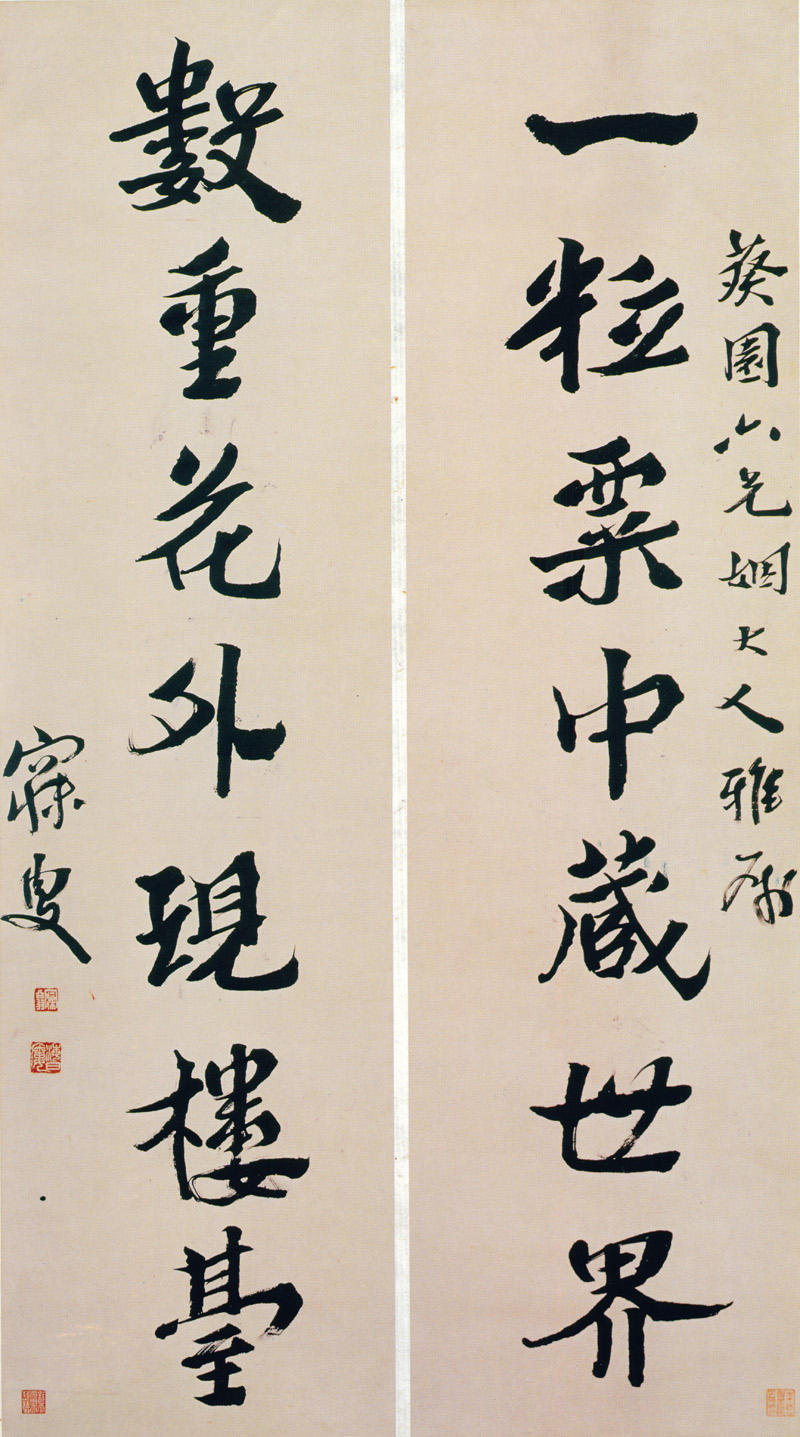 葵園六兄姻大人雅屬
一粒粟中藏世界
數重花外現樓臺
寐叟